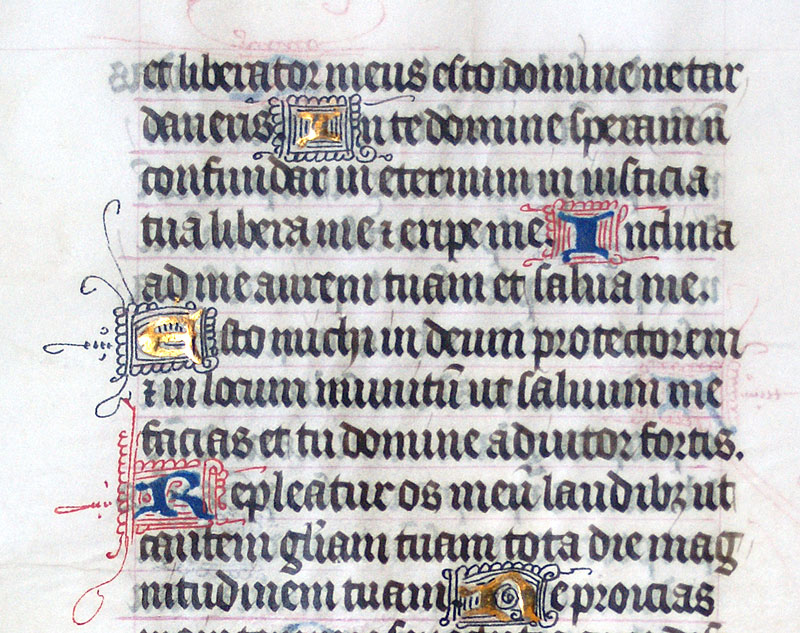 et liberator meus esto domine ne tar
daveris In te domine speravi nō
confundar in eternum in iusticia
tua libera me ⁊ eripe me Inclina
ad me aurem tuam et salva me.
Esto michi in deum protectorem
⁊ in locum munitū ut salvum me
facias et tu domine adiutor fortis.
Repleatur os meū laudibꝫ ut
cantem gl̄iam tuam tota die mag
nitudinem tuam Ne proicias